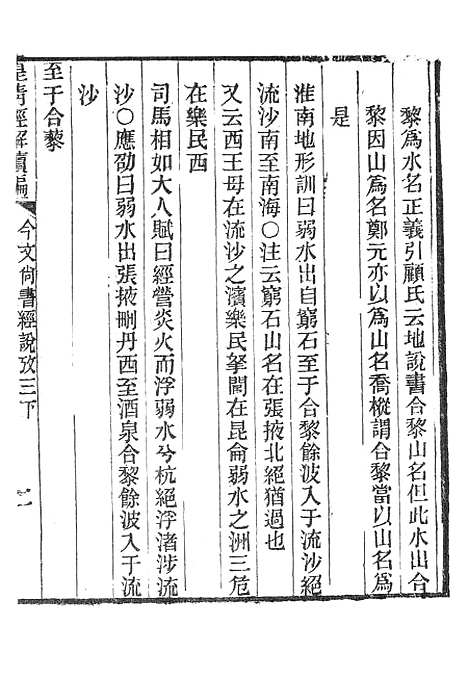 黎爲水名正義引顧氏云地說書合黎山名但此水出合
黎因山爲名鄭元亦以爲山名喬樅謂合黎當以山名爲
是
淮南地形訓曰弱水出自窮石至于合黎餘波入于流沙絕
流沙南至南海〇注云窮石山名在張掖北絕猶過也
又云西王母在流沙之濱樂民挐閭在昆侖弱水之洲三危
在樂民西
司馬相如大人賦曰經營炎火而浮弱水兮杭絕浮渚涉流
沙〇應劭曰弱水出張掖刪丹西至酒泉合黎餘波入于流
沙
至于合黎
皇淸經解續編
今文尙書經說攷三下